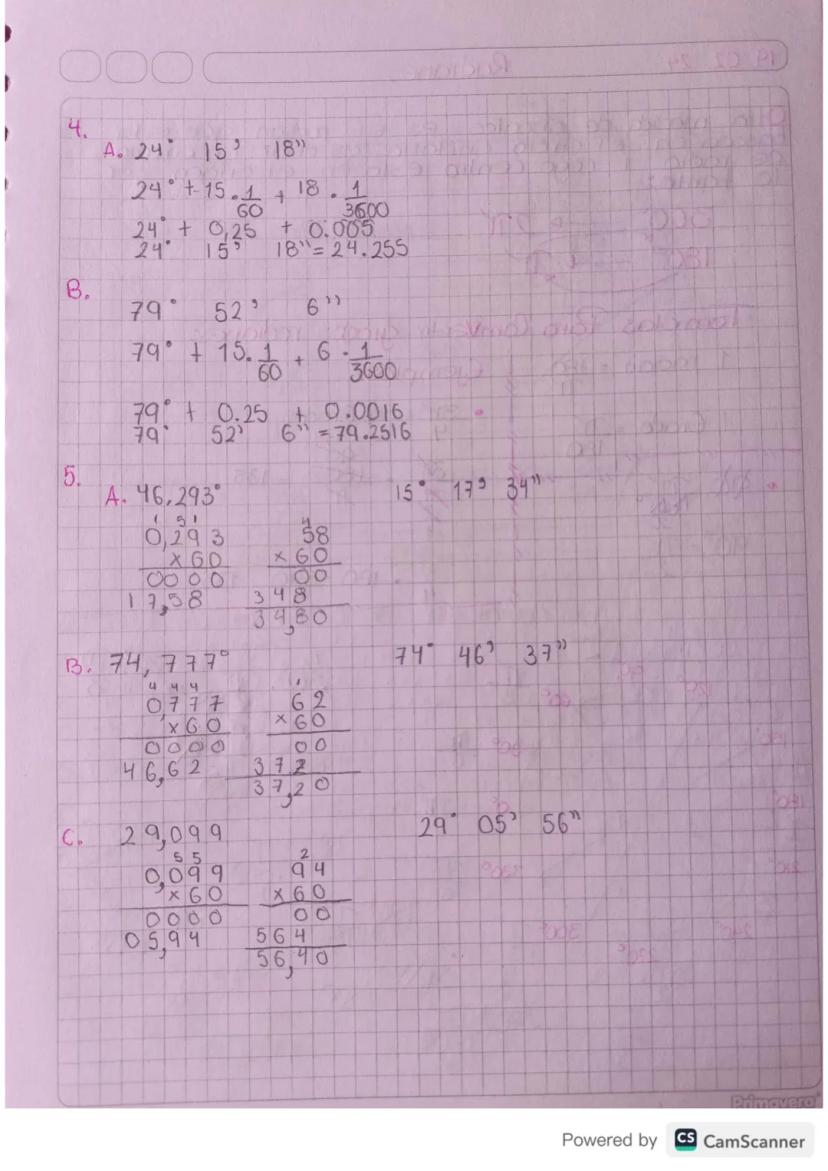 4.
A. 24° 15' 18"
24° + 15 . 1/60 + 18 . 1/3600
24° + 0,25 + 0.005
24° 15' 18" = 24.255
B.
79° 52' 6"
79° + 15. 1/60 + 6 . 1/3600
79° + 0.25 + 0.0016
79° 52' 6" = 79.2516
5.
A. 46,293° 15° 17' 34"
1 5 1 4
0,293 58
x60 x60
0000 00
17,58 348
34,80
B. 74,777° 74° 46' 37"
4 4 4 1
0777 62
x60 x60
0000 00
46,62 372
37,20
C. 29,099 29° 05' 56"
5 5 2
0,099 94
x60 x60
0000 00
05,94 564
56,40
Primavera
Powered by CS CamScanner